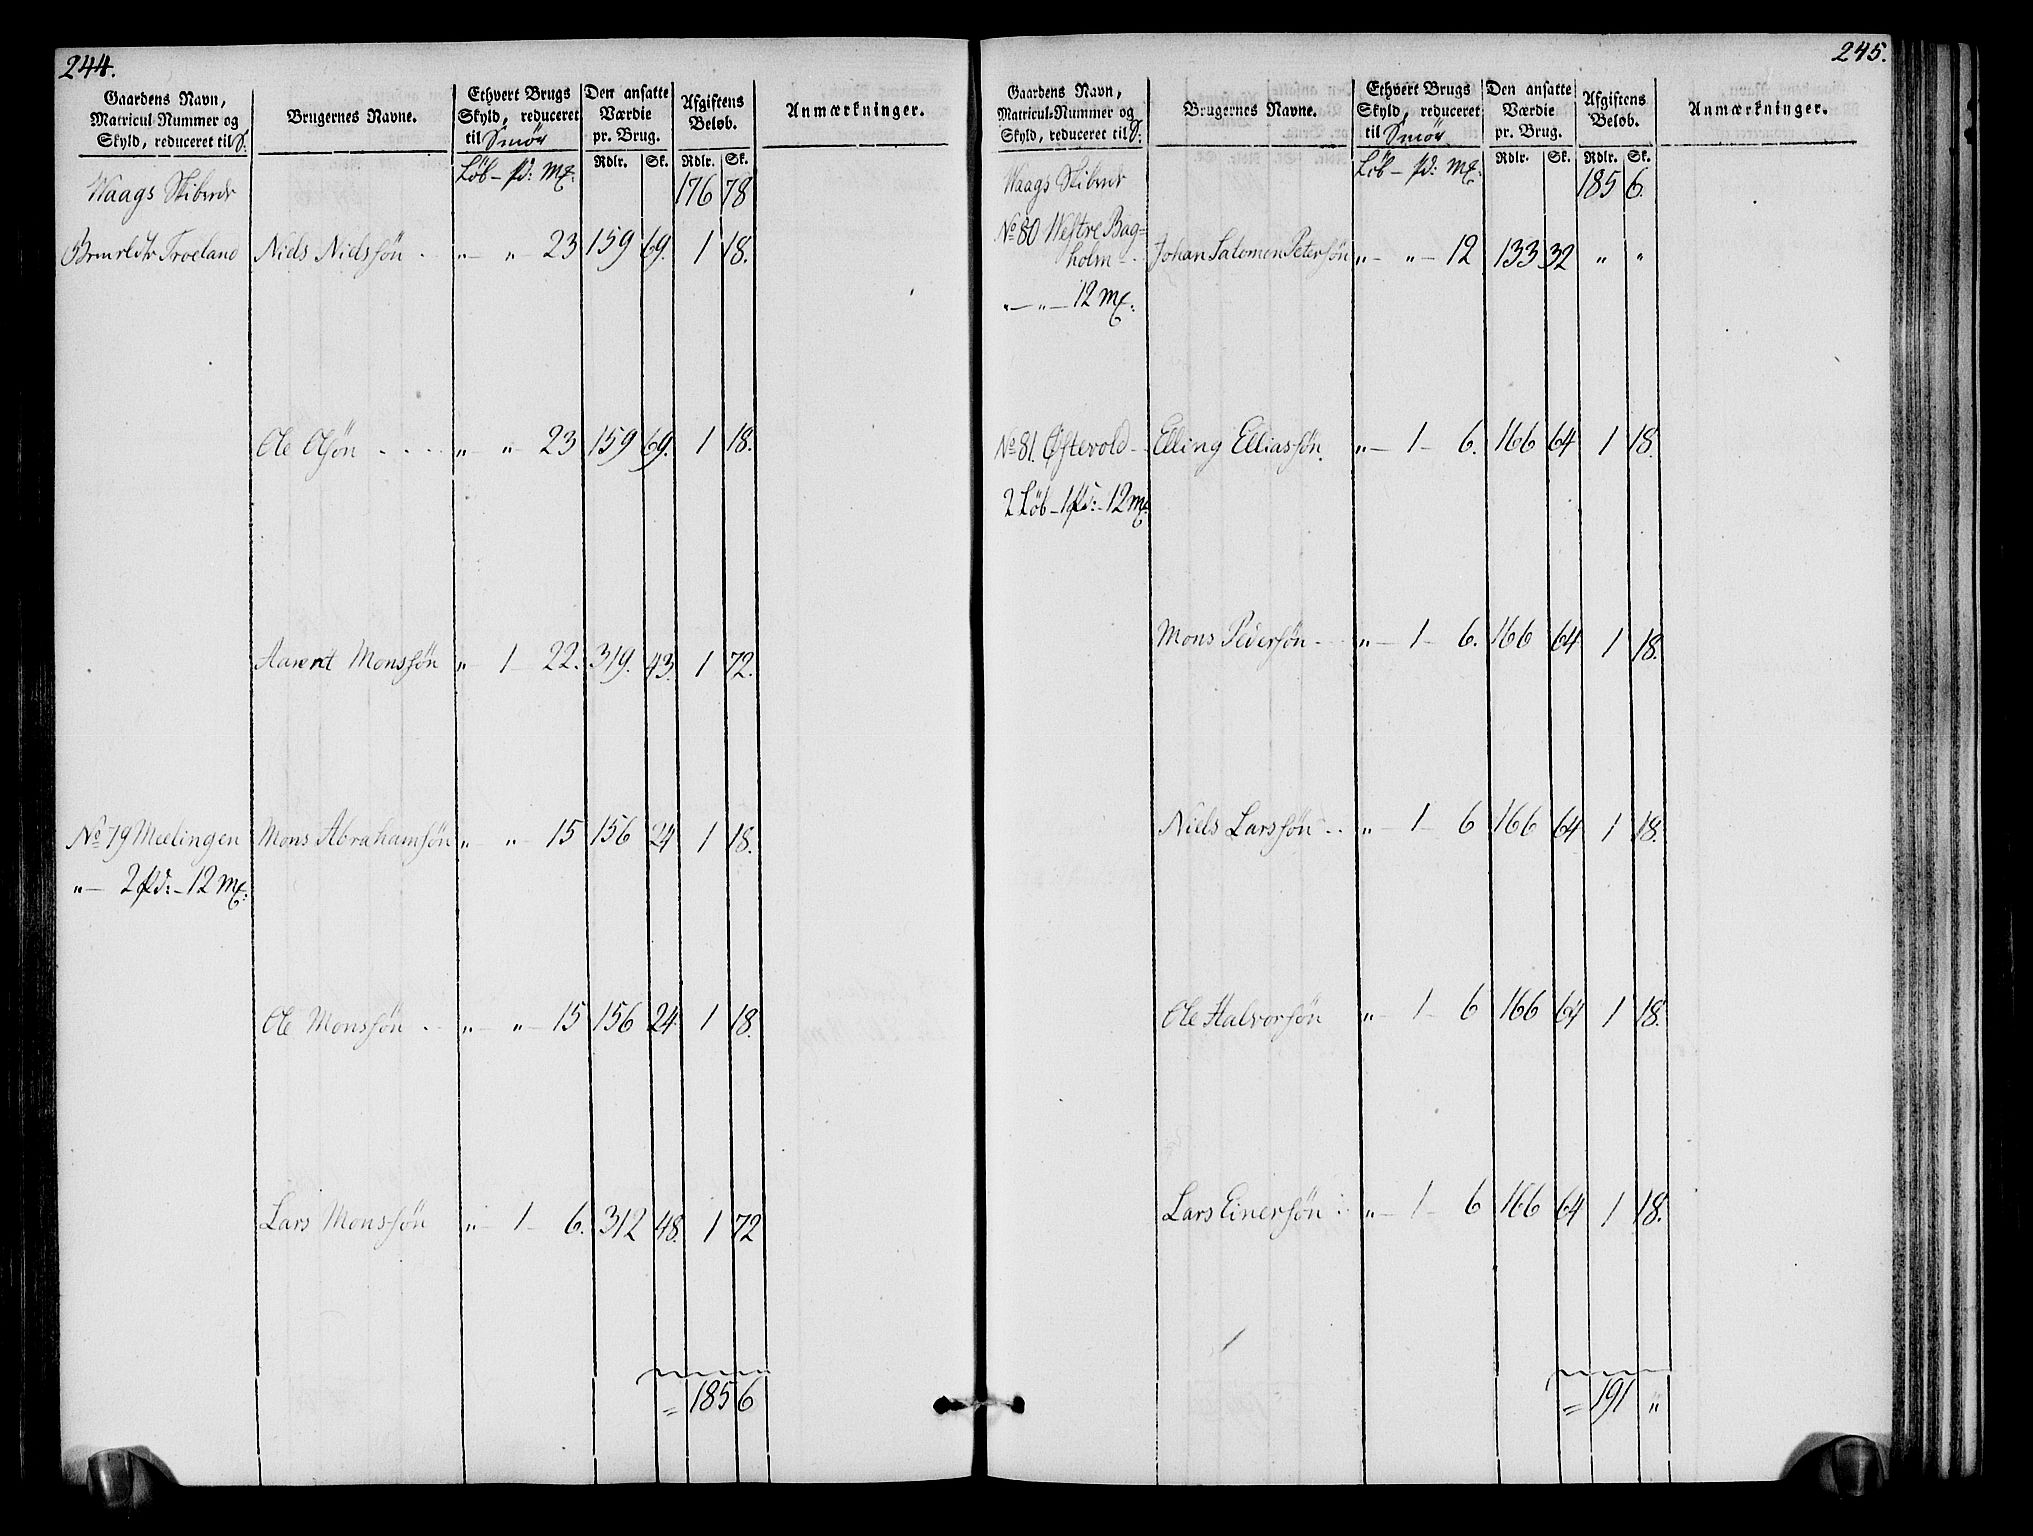 244.
Gaardens Navn, Matricul-Nummer og Skyld, reduceret til S. Brugernes Navne. Ethvert Brugs Skyld, reduceret til Smör Den ansatte Værdie pr. Brug. Afgiftens Beløb. Anmærkninger.
Löb — pd: mꝭ. Rdlr. Sk. Rdlr. Sk.
Waags Skibrede 176 78
Troeland Niels Nielssön „ — „ — 23 159 69. 1 18.
Ole Olsön „ — „ — 23 159 69. 1 18.
Aarent Monssön „ — 1 — 22. 319. 43. 1 72.
No 79 Meelingen Mons Abrahamsön „ — „ — 15 156 24 1 18.
„ — 2 pd: — 12 mꝭ.
Ole Monssön „ — „ — 15 156 24. 1 18.
Lars Monssön „ — 1 — 6. 312 48. 1 72
= 185 6
245.
Gaardens Navn, Matricul-Nummer og Skyld, reduceret til S. Brugernes Navne. Ethvert Brugs Skyld, reduceret til Smör Den ansatte Værdie pr. Brug. Afgiftens Beløb. Anmærkninger.
Löb — pd: mꝭ. Rdlr. Sk. Rdlr. Sk.
Waags Skibrede 185 6.
No 80 Westre Bag=
holm Johan Salomon Petersön „ — „ — 12 133 32 „ „
„ — „ — 12 mꝭ.
No 81. Øftevold Elling Elliassön. „ — 1 — 6. 166 64 1 18.
2 Löb — 1 pd: — 12 mꝭ.
Mons Pedersön „ — 1 — 6. 166 64 1 18.
Niels Larssön „ — 1 — 6 166 64 1 18.
Ole Halvorsön „ — 1 — 6 166 64 1 18.
Lars Einersön „ — 1 — 6 166 64 1 18.
= 191 „